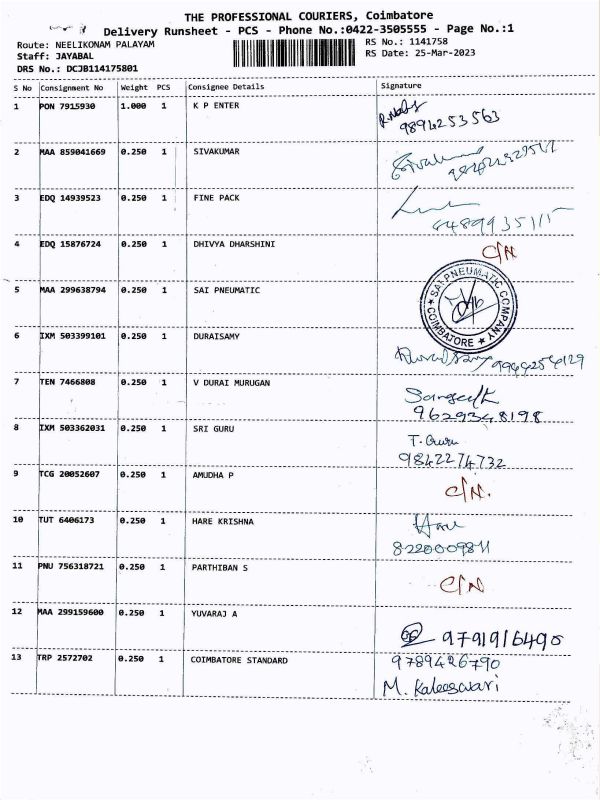 THE PROFESSIONAL COURIERS, Coimbatore
Delivery Runsheet - PCS - Phone No.:0422-3505555 - Page No.:1
Route: NEELIKONAM PALAYAM
RS No.: 1141758
Staff: JAYABAL
RS Date: 25-Mar-2023
DRS No.: DCJB114175801
S No Consignment No Weight PCS Consignee Details Signature
1 PON 7915930 1.000 1 K P ENTER
9894253563
2 MAA 859041669 0.250 1 SIVAKUMAR
3 EDQ 14939523 0.250 1 FINE PACK
4 EDQ 15876724 0.250 1 DHIVYA DHARSHINI C/N
5 MAA 299638794 0.250 1 SAI PNEUMATIC
SAI PNEUMATIC COMPANY
★ COIMBATORE ★
6 IXM 503399101 0.250 1 DURAISAMY
7 TEN 7466808 0.250 1 V DURAI MURUGAN Sangeeth
9629348198
8 IXM 503362031 0.250 1 SRI GURU T. Guru
9842274732
9 TCG 20052607 0.250 1 AMUDHA P C/N.
10 TUT 6406173 0.250 1 HARE KRISHNA
11 PNU 756318721 0.250 1 PARTHIBAN S C/N
12 MAA 299159600 0.250 1 YUVARAJ A
9791916490
13 TRP 2572702 0.250 1 COIMBATORE STANDARD 9789426790
M. Kaleeswari